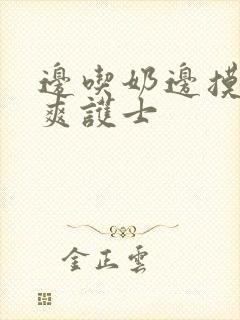 邊喫奶邊摸
爽護士
金正雲